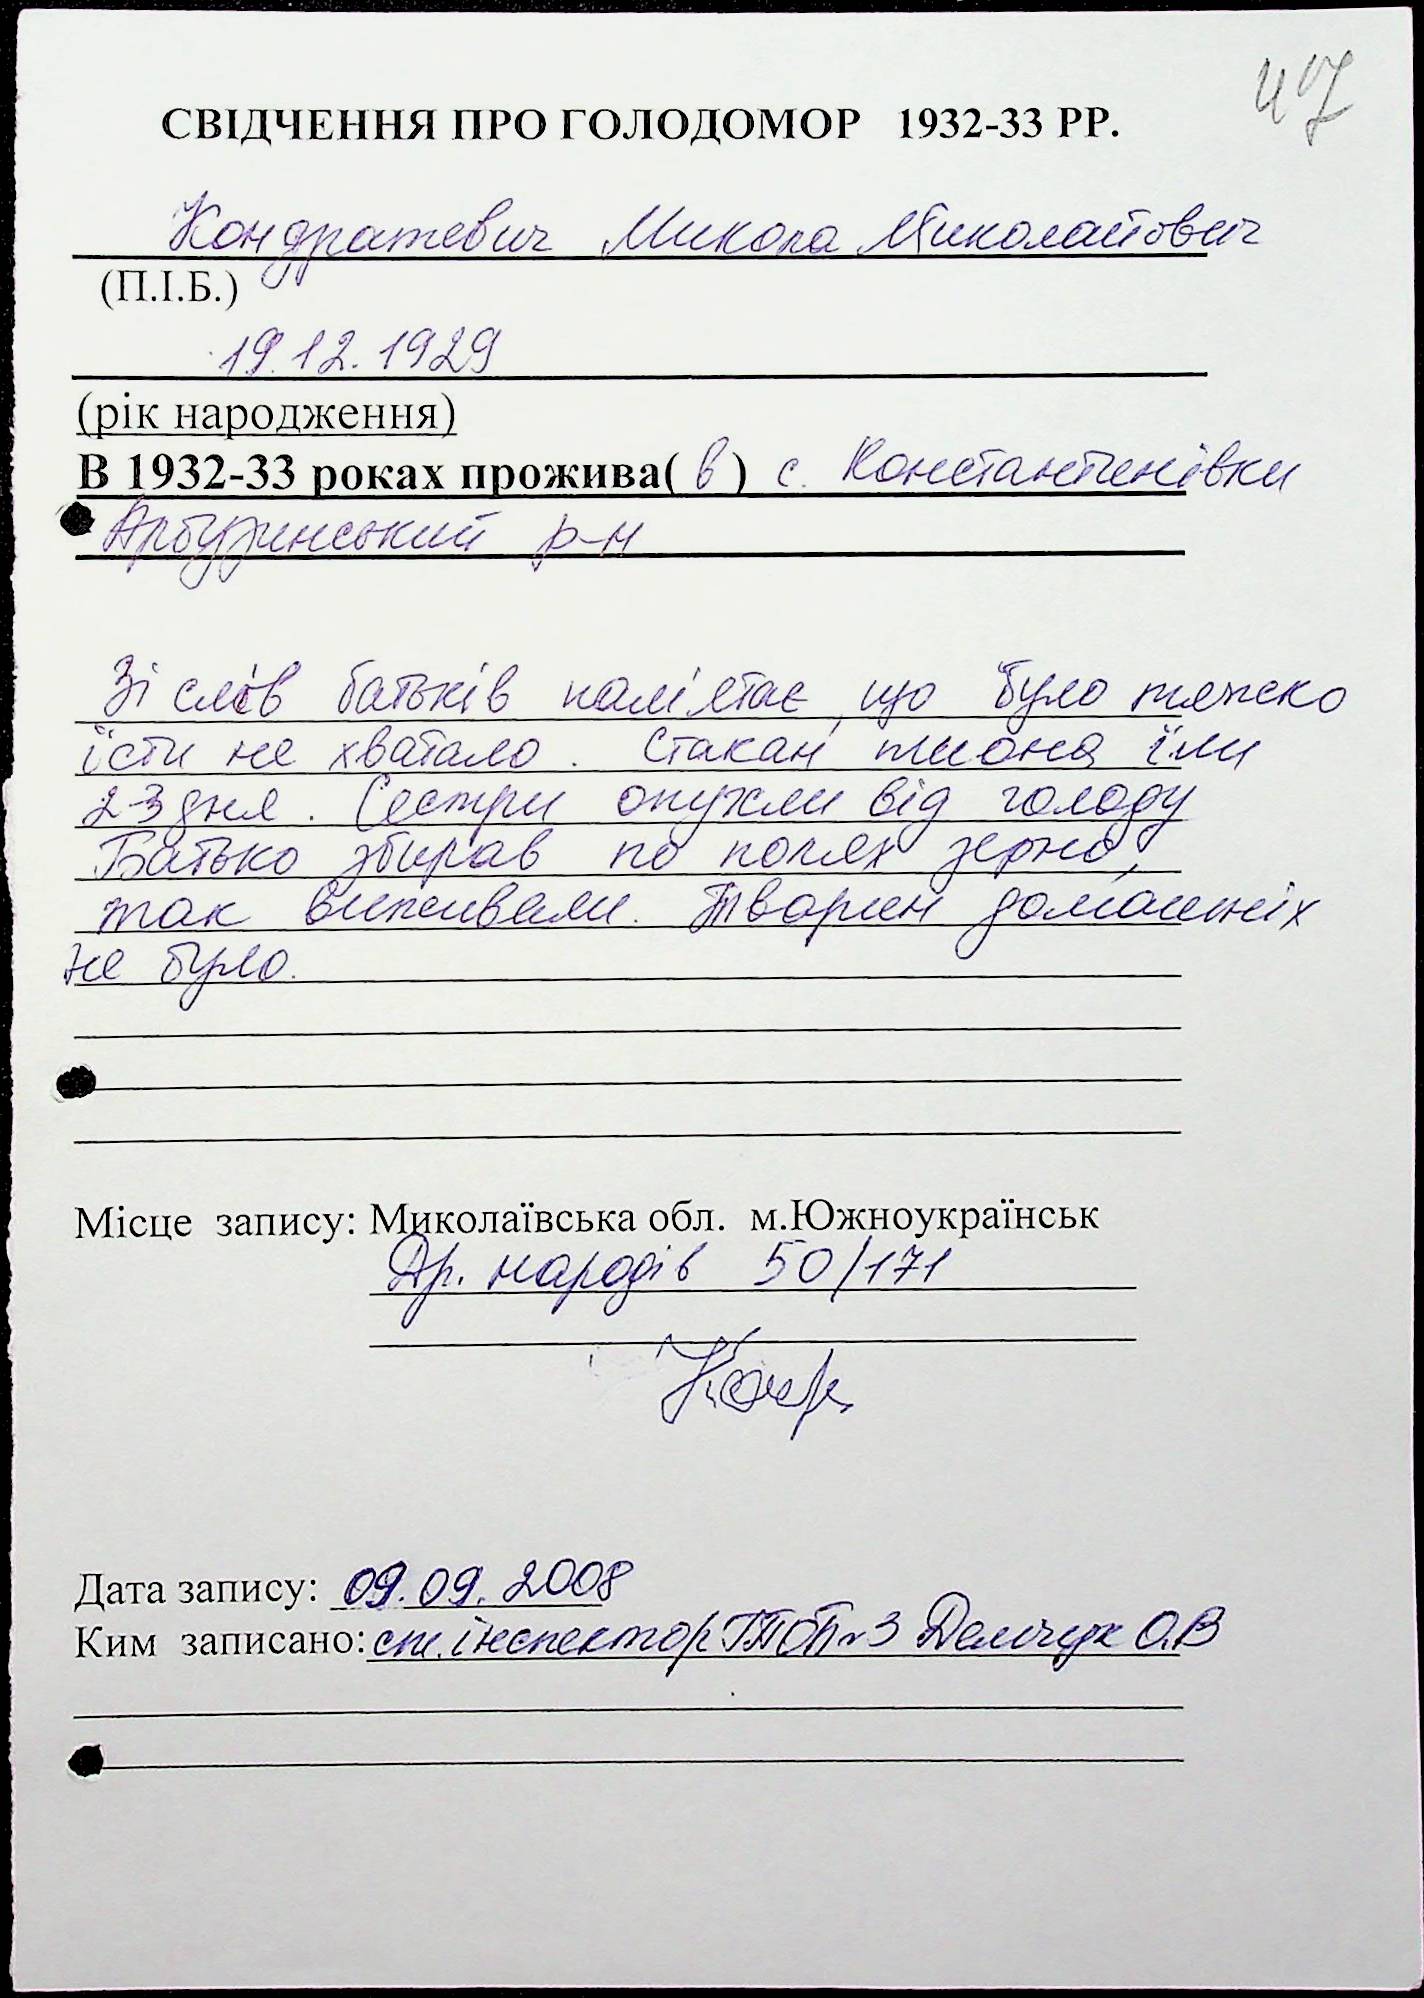 47
СВІДЧЕННЯ ПРО ГОЛОДОМОР 1932-33 РР.
Кондратевич Микола Миколайович
(П.І.Б.)
19.12.1929
(рік народження)
В 1932-33 роках прожива( в ) с. Константинівки
Арбузинський р-н
Зі слів батьків пам'ятає, що було тяжко
їсти не хватало. Стакан пшона їли
2-3 дня. Сестри опухли від голоду
Батько збирав по полях зерно,
так виживали. Тварин домашніх
не було.
Місце запису: Миколаївська обл. м.Южноукраїнськ
Др. народів 50/171
Дата запису: 09.09.2008
Ким записано: ст. інспектор №3 О.В